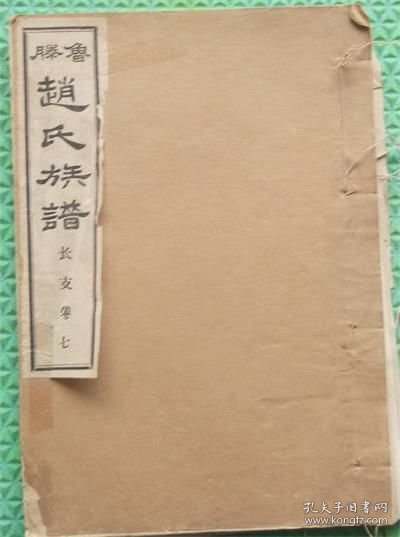 魯滕
趙氏族譜
长支卷七
孔夫子旧书网
www.kongfz.com